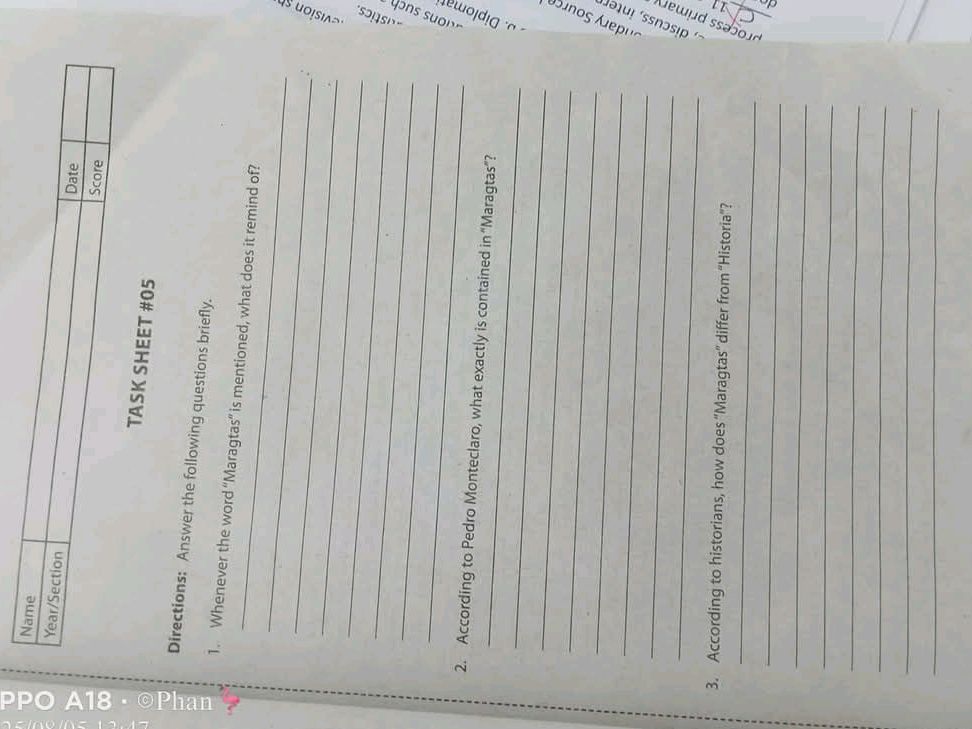 process primary
, discuss, interp
ondary Source
11
Name
Date
Year/Section
Score
TASK SHEET #05
Directions: Answer the following questions briefly.
1. Whenever the word "Maragtas" is mentioned, what does it remind of?
2. According to Pedro Monteclaro, what exactly is contained in "Maragtas"?
3. According to historians, how does "Maragtas" differ from "Historia"?
PPO A18 · ©Phan
25/08/05 12:47